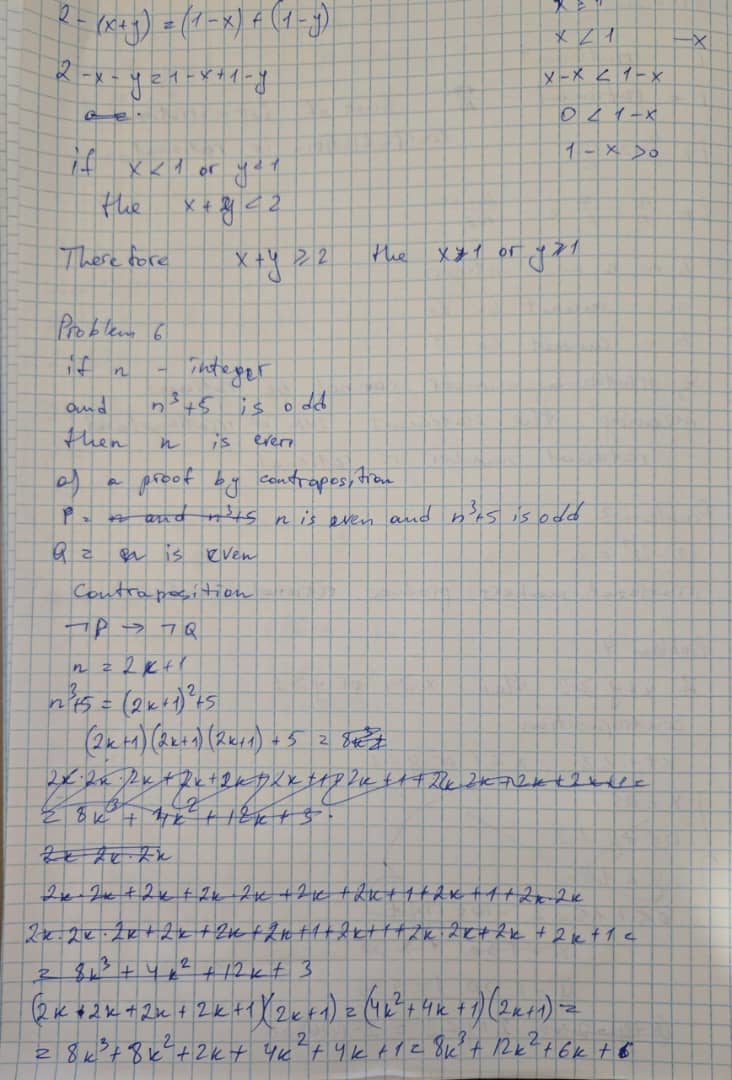 2 - (x+y) = (1-x) + (1-y)
2 - x - y = 1 - x + 1 - y
if x < 1 or y < 1
the x + y < 2
Therefore x + y ≥ 2 the x ≥ 1 or y ≥ 1
x < 1 -x
x - x < 1 - x
0 < 1 - x
1 - x > 0
Problem 6
if n - integer
and n³+5 is odd
then n is even
a) a proof by contraposition
P = n and n³+5 n is even and n³+5 is odd
Q = n is even
Contraposition
¬P → ¬Q
n = 2k+1
n³+5 = (2k+1)²+5
(2k+1)(2k+1)(2k+1) + 5 = 8k³+
= 8k³ + 4k² + 12k + 3
2k·2k·2k
2k·2k + 2k + 2k·2k + 2k + 2k + 1 + 2k + 1 + 2k·2k
2k·2k·2k + 2k + 2k + 2k + 1 + 2k + 1 + 2k·2k + 2k + 2k + 1 =
= 8k³ + 4k² + 12k + 3
(2k·2k + 2k + 2k + 1)(2k+1) = (4k² + 4k + 1)(2k+1) =
= 8k³ + 8k² + 2k + 4k² + 4k + 1 = 8k³ + 12k² + 6k + 6